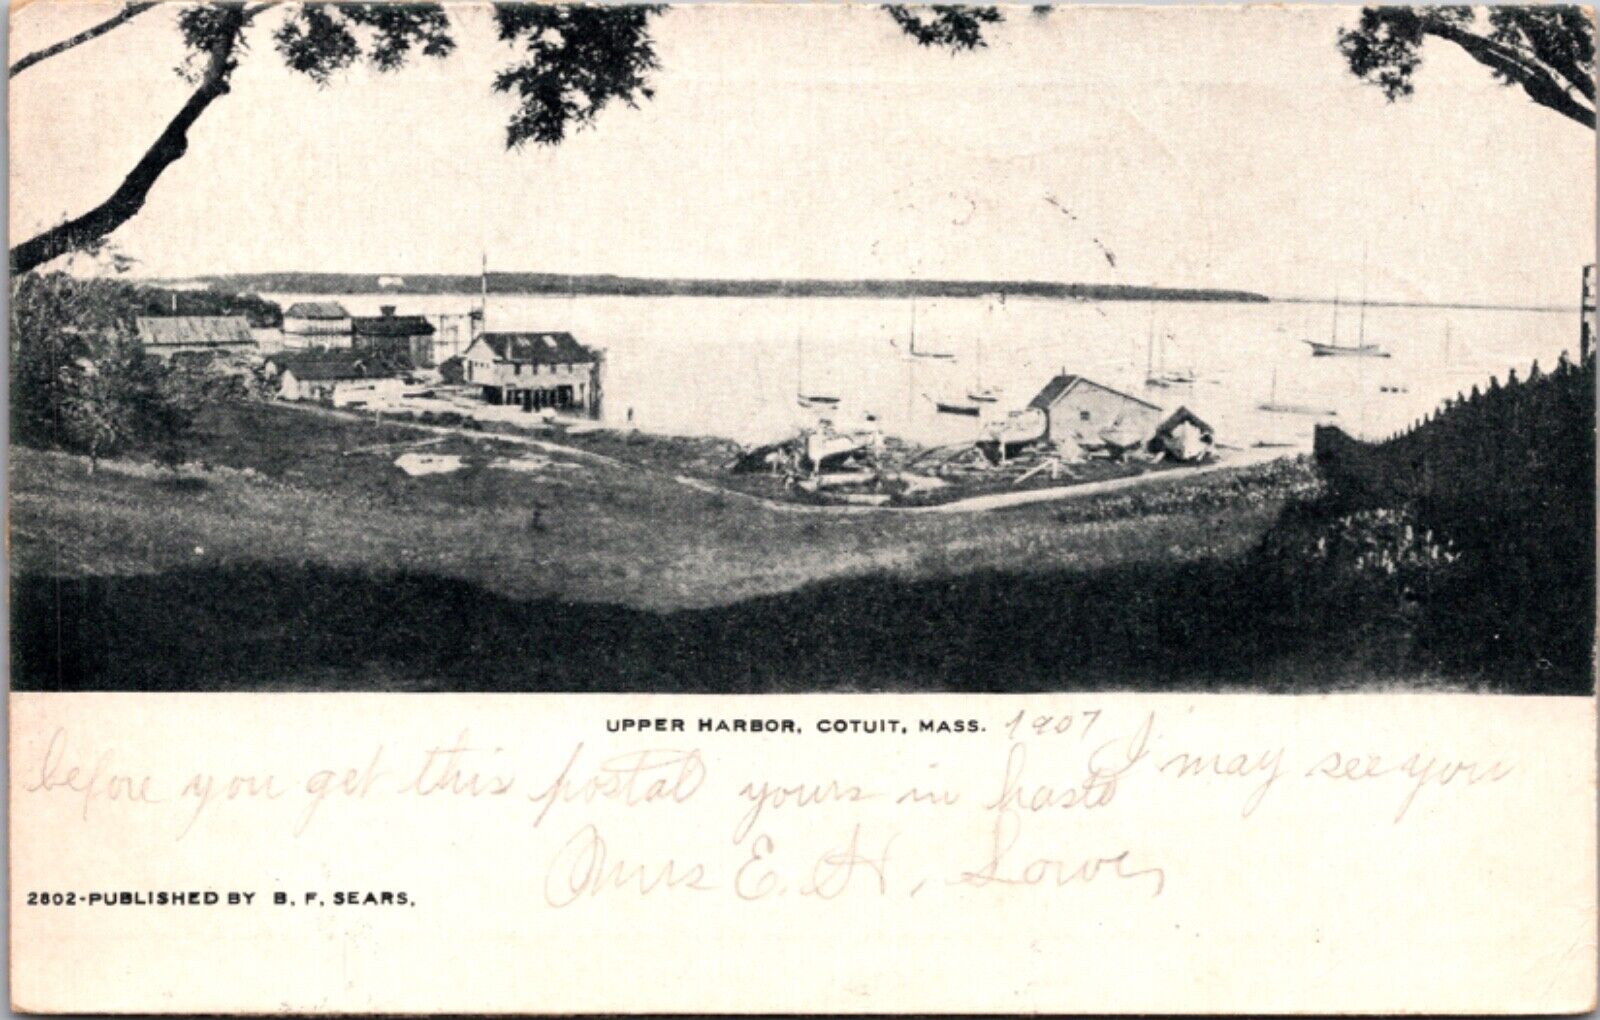 UPPER HARBOR, COTUIT, MASS. 1907 I may see you
before you get this postal yours in haste
Mrs E. H. Lowe
2802-PUBLISHED BY B. F. SEARS.